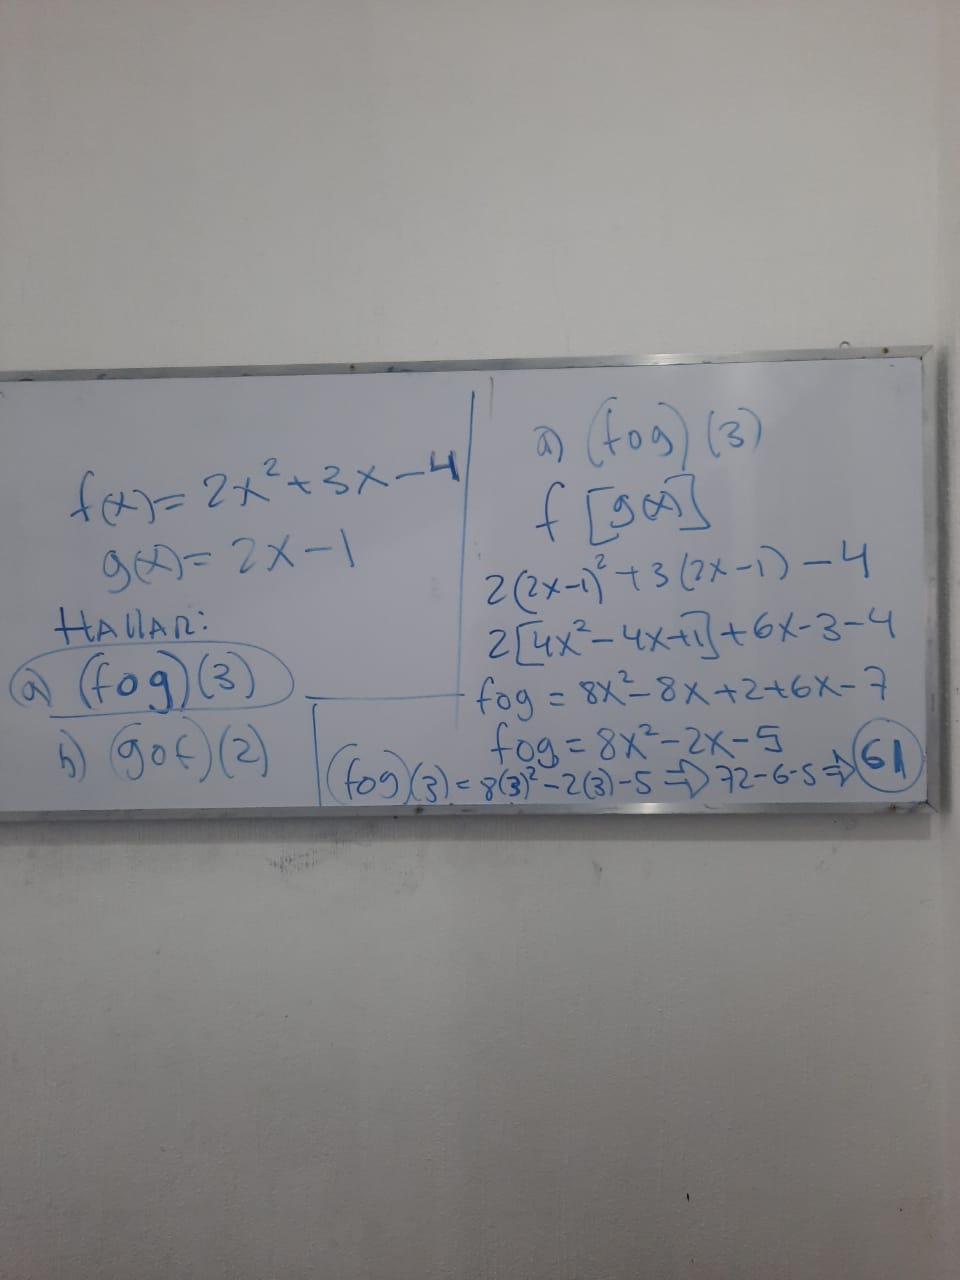 f(x)= 2x²+3x-4
g(x)= 2x-1
HALLAR:
a) (fog)(3)
b) (gof)(2)
a) (fog)(3)
f[g(x)]
2(2x-1)²+3(2x-1)-4
2[4x²-4x+1]+6x-3-4
fog = 8x²-8x+2+6x-7
fog = 8x²-2x-5
(fog)(3)= 8(3)²-2(3)-5 ⇒ 72-6-5 ⇒ 61